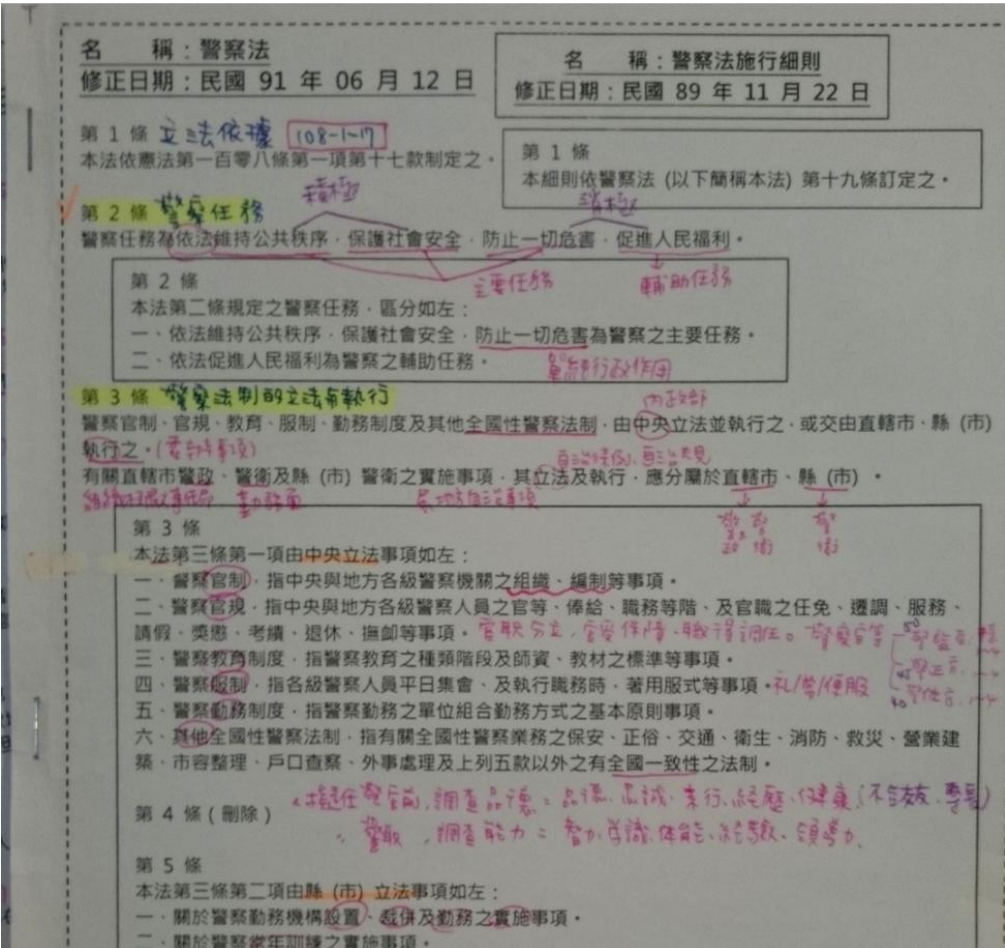 名 稱：警察法
修正日期：民國 91 年 06 月 12 日
名 稱：警察法施行細則
修正日期：民國 89 年 11 月 22 日
第 1 條 立法依據 108-1-17
本法依憲法第一百零八條第一項第十七款制定之。
第 1 條
本細則依警察法 (以下簡稱本法) 第十九條訂定之。
積極 消極
第 2 條 警察任務
警察任務為依法維持公共秩序，保護社會安全，防止一切危害，促進人民福利。
主要任務 輔助任務
第 2 條
本法第二條規定之警察任務，區分如左：
一、依法維持公共秩序，保護社會安全，防止一切危害為警察之主要任務。
二、依法促進人民福利為警察之輔助任務。
行政作用
第 3 條 警察法制的立法與執行
內政部
警察官制、官規、教育、服制、勤務制度及其他全國性警察法制，由中央立法並執行之，或交由直轄市、縣 (市)
執行之。
有關直轄市警政、警衛及縣 (市) 警衛之實施事項，其立法及執行，應分屬於直轄市、縣 (市) 。
警政 警衛 警衛
第 3 條
本法第三條第一項由中央立法事項如左：
一、警察官制，指中央與地方各級警察機關之組織、編制等事項。
二、警察官規，指中央與地方各級警察人員之官等、俸給、職務等階、及官職之任免、遷調、服務、
請假、獎懲、考績、退休、撫卹等事項。 官職分立，官受保障，職得調任。警察官等
警監 警正 警佐
三、警察教育制度，指警察教育之種類階段及師資、教材之標準等事項。
四、警察服制，指各級警察人員平日集會、及執行職務時，著用服式等事項。 禮/常/便服
五、警察勤務制度，指警察勤務之單位組合勤務方式之基本原則事項。
六、其他全國性警察法制，指有關全國性警察業務之保安、正俗、交通、衛生、消防、救災、營業建
築、市容整理、戶口查察、外事處理及上列五款以外之有全國一致性之法制。
擬任警官前，調查品德：品德、忠誠、素行、經歷、健康
第 4 條 ( 刪除 )
調查能力：智力、學識、體能、經驗、領導力
第 5 條
本法第三條第二項由縣 (市) 立法事項如左：
一、關於警察勤務機構設置、裁併及勤務之實施事項。
二、關於警察常年訓練之實施事項。